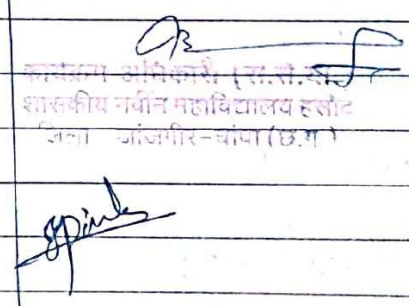 कार्यक्रम अधिकारी (रा.से.यो.)
शासकीय नवीन महाविद्यालय हसौद
जिला जांजगीर-चांपा (छ.ग.)